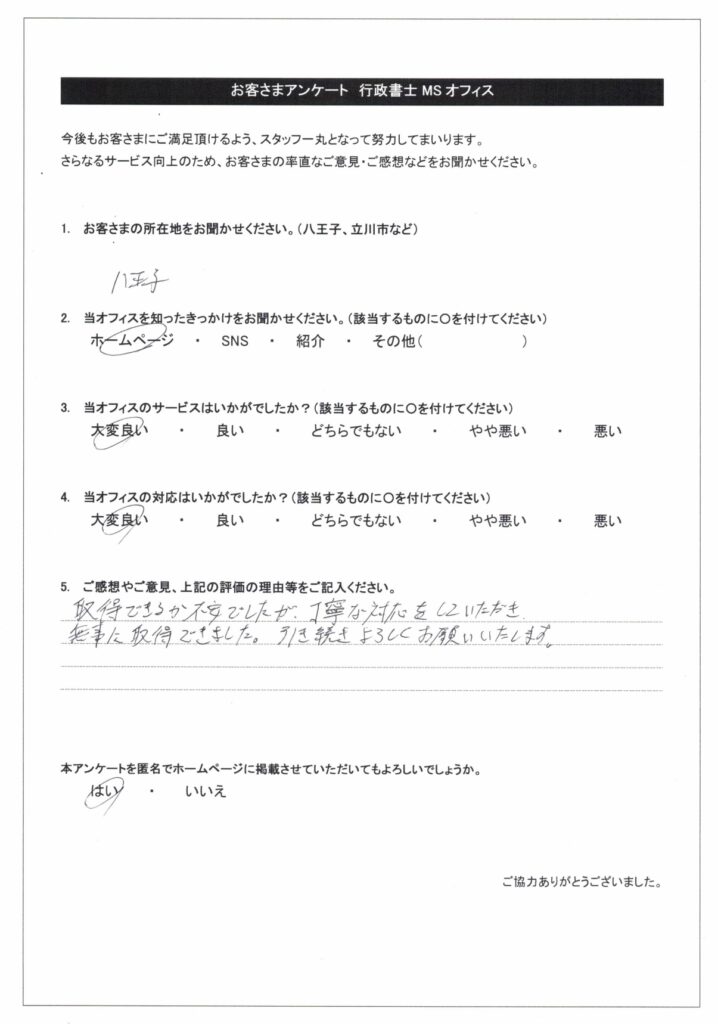 お客さまアンケート 行政書士 MS オフィス
今後もお客さまにご満足頂けるよう、スタッフ一丸となって努力してまいります。
さらなるサービス向上のため、お客さまの率直なご意見・ご感想などをお聞かせください。
1. お客さまの所在地をお聞かせください。(八王子、立川市など)
八王子
2. 当オフィスを知ったきっかけをお聞かせください。(該当するものに〇を付けてください)
ホームページ ・ SNS ・ 紹介 ・ その他( )
3. 当オフィスのサービスはいかがでしたか?(該当するものに〇を付けてください)
大変良い ・ 良い ・ どちらでもない ・ やや悪い ・ 悪い
4. 当オフィスの対応はいかがでしたか?(該当するものに〇を付けてください)
大変良い ・ 良い ・ どちらでもない ・ やや悪い ・ 悪い
5. ご感想やご意見、上記の評価の理由等をご記入ください。
取得できるか不安でしたが、丁寧な対応をしていただき、
無事に取得できました。引き続きよろしくお願いいたします。
本アンケートを匿名でホームページに掲載させていただいてもよろしいでしょうか。
はい ・ いいえ
ご協力ありがとうございました。